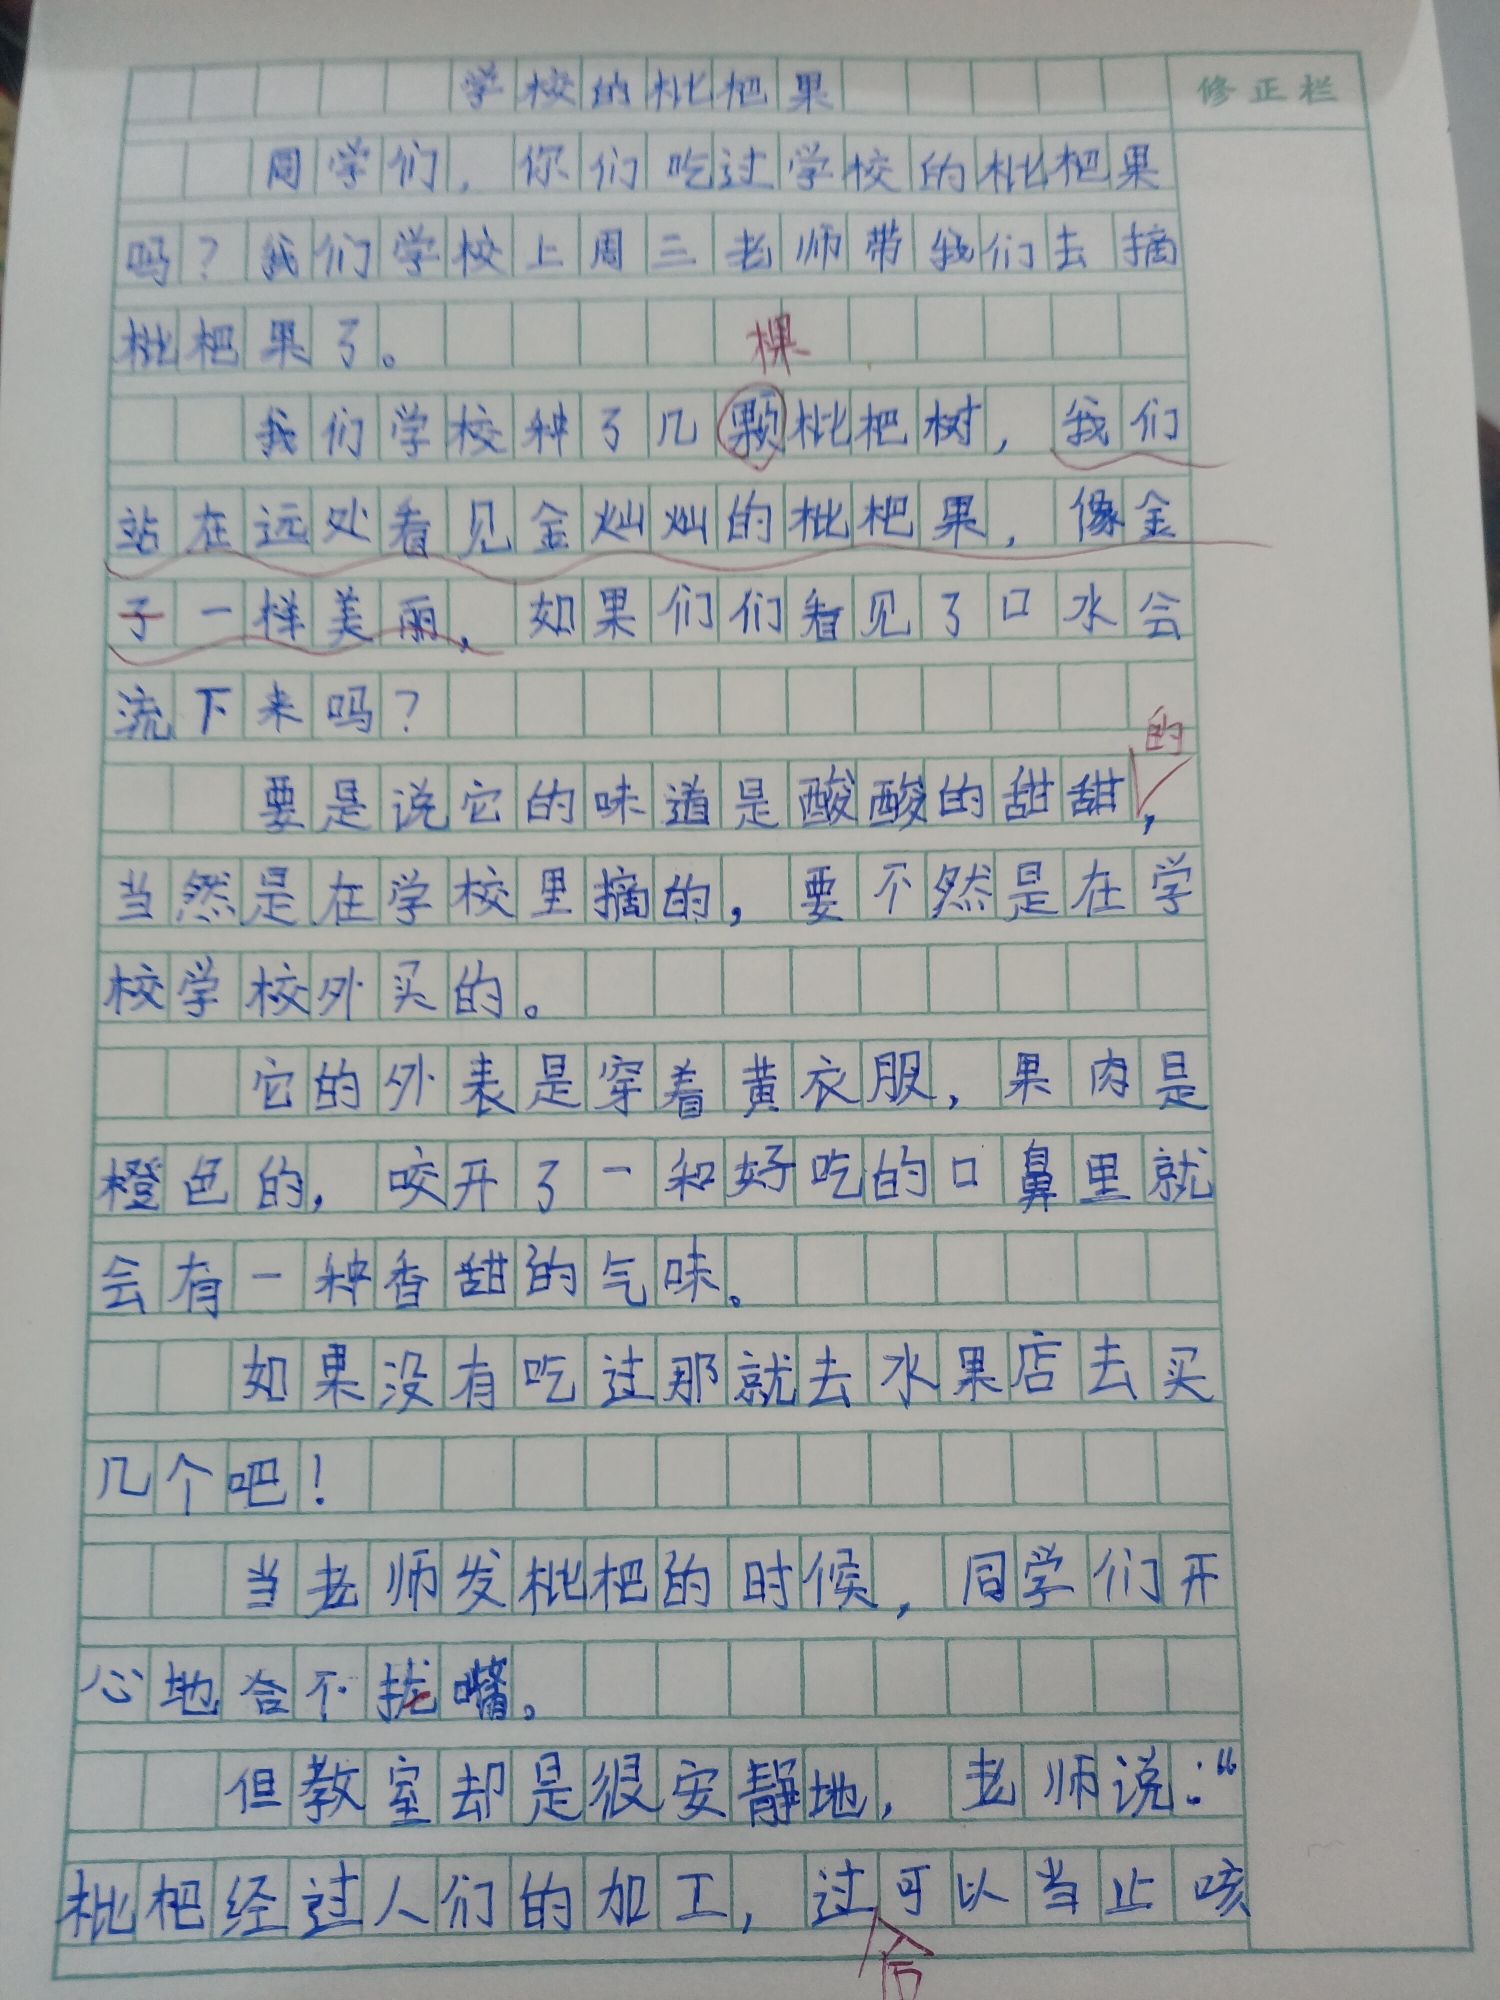 学校的枇杷果
修正栏
同学们，你们吃过学校的枇杷果
吗？我们学校上周三老师带我们去摘
枇杷果了。
棵
我们学校种了几颗枇杷树，我们
站在远处看见金灿灿的枇杷果，像金
子一样美丽，如果们们看见了口水会
流下来吗？
的
要是说它的味道是酸酸的甜甜，
当然是在学校里摘的，要不然是在学
校学校外买的。
它的外表是穿着黄衣服，果肉是
橙色的，咬开了一和好吃的口鼻里就
会有一种香甜的气味。
如果没有吃过那就去水果店去买
几个吧！
当老师发枇杷的时候，同学们开
心地合不拢嘴。
但教室却是很安静地，老师说：“
枇杷经过人们的加工，过可以当止咳